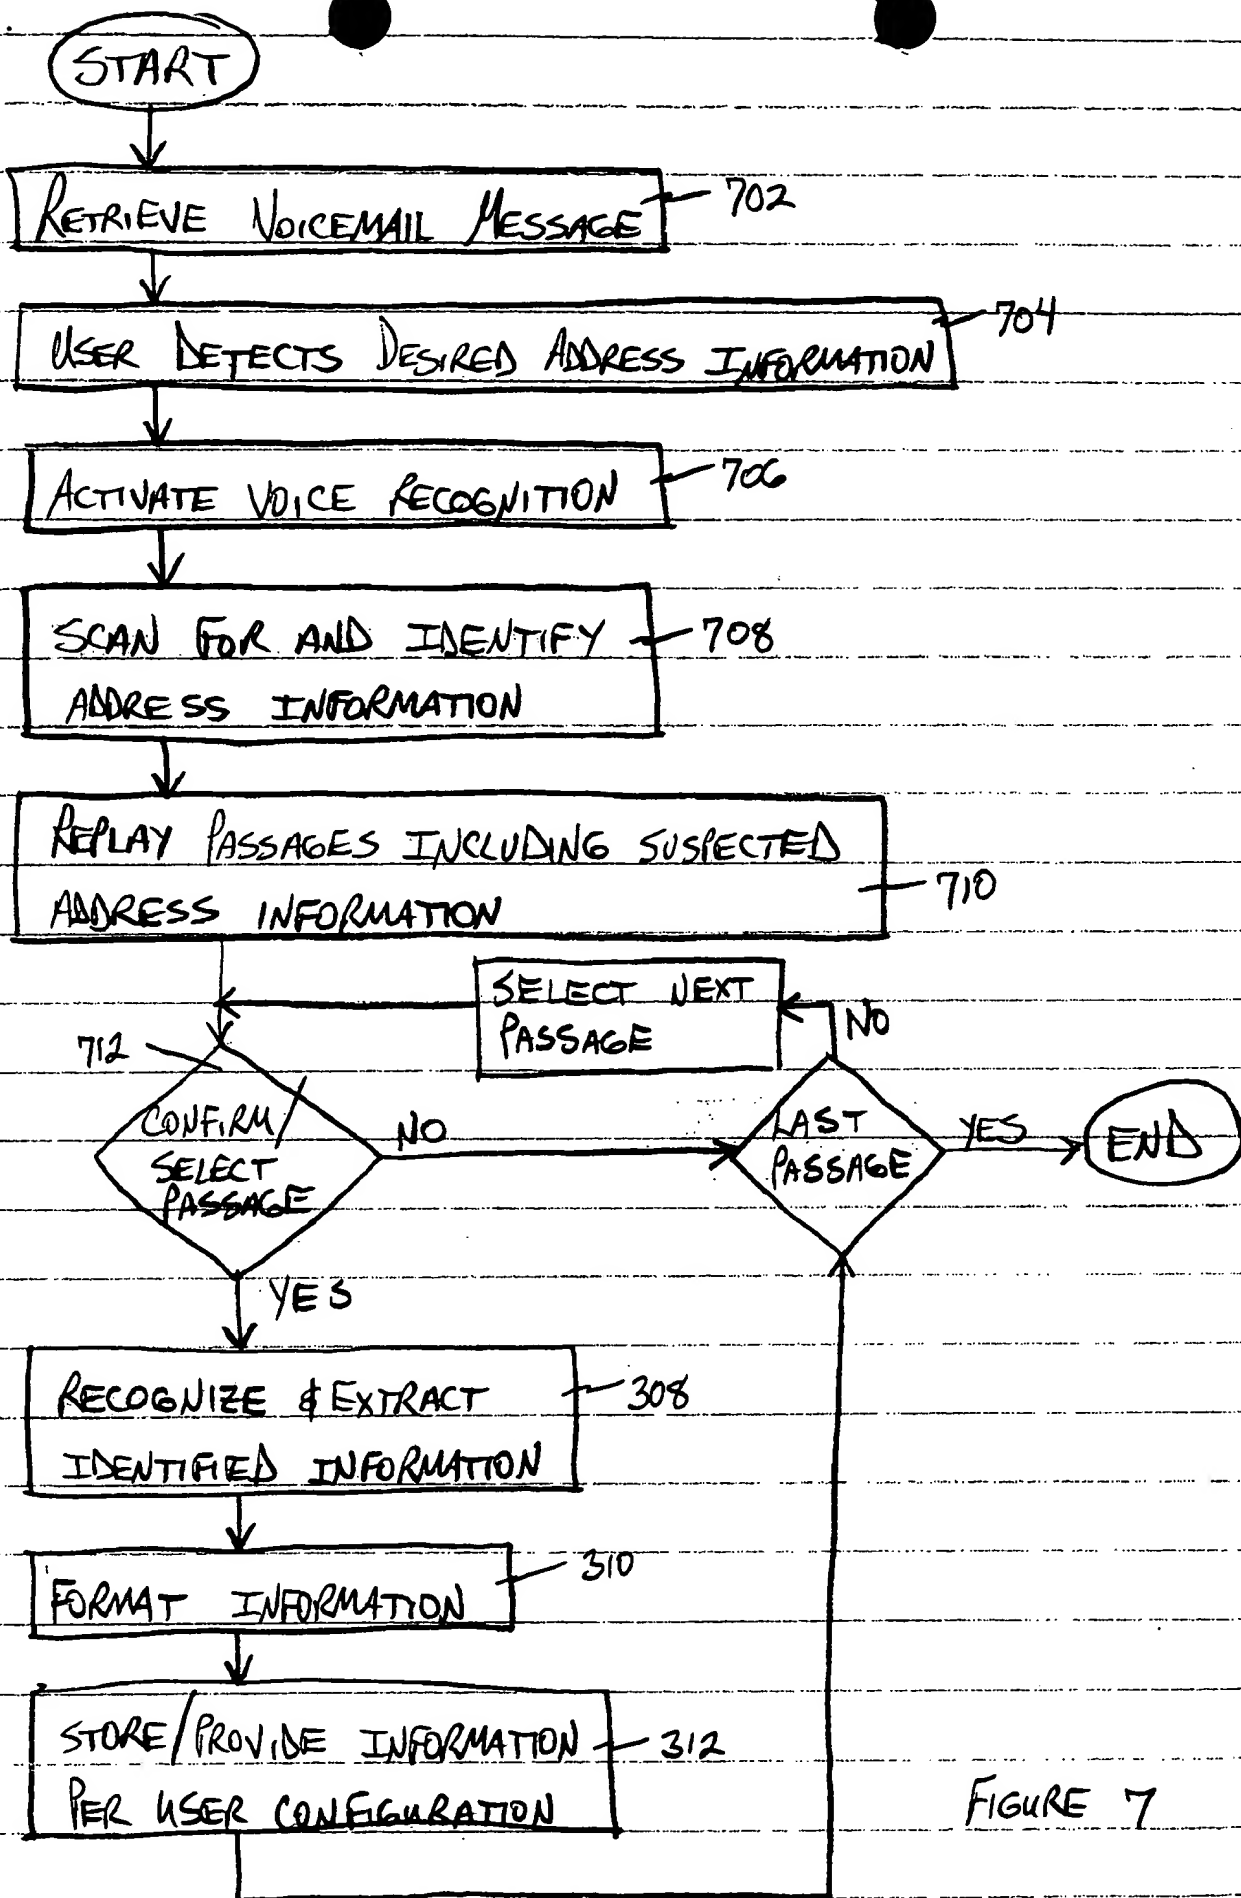 START
RETRIEVE VOICEMAIL MESSAGE 702
USER DETECTS DESIRED ADDRESS INFORMATION 704
ACTIVATE VOICE RECOGNITION 706
SCAN FOR AND IDENTIFY 708
ADDRESS INFORMATION
REPLAY PASSAGES INCLUDING SUSPECTED
ADDRESS INFORMATION 710
SELECT NEXT
PASSAGE
NO
712
CONFIRM/
SELECT
PASSAGE
NO
LAST
PASSAGE
YES
END
YES
RECOGNIZE & EXTRACT 308
IDENTIFIED INFORMATION
FORMAT INFORMATION 310
STORE/PROVIDE INFORMATION 312
PER USER CONFIGURATION
FIGURE 7